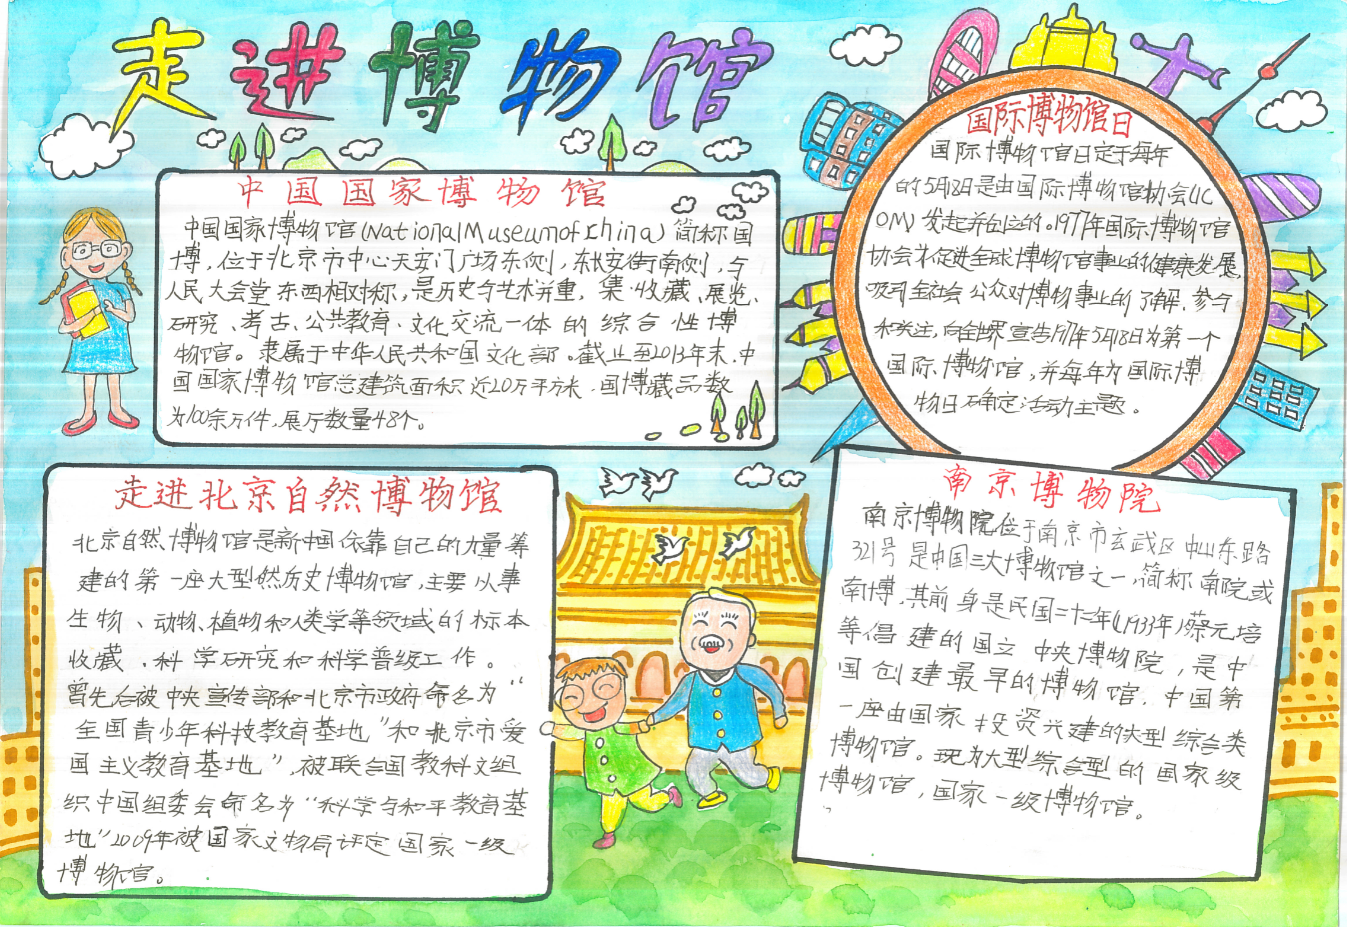 走进博物馆
中国国家博物馆
中国国家博物馆(National Museum of China)简称国
博,位于北京市中心天安门广场东侧,东长安街南侧,与
人民大会堂东西相对称,是历史与艺术并重,集收藏、展览、
研究、考古、公共教育、文化交流一体的综合性博
物馆。隶属于中华人民共和国文化部。截止至2013年末,中
国国家博物馆总建筑面积近20万平方米,国博藏品数
为100余万件,展厅数量48个。
国际博物馆日
国际博物馆日定于每年
的5月18日是由国际博物馆协会(IC
OM)发起并创立的。1977年国际博物馆
协会为促进全球博物馆事业的健康发展,
吸引全社会公众对博物事业的了解、参与
和关注,向全世界宣告1977年5月18日为第一个
国际博物馆,并每年为国际博
物日确定活动主题。
走进北京自然博物馆
北京自然博物馆是新中国依靠自己的力量筹
建的第一座大型然历史博物馆,主要从事
生物、动物、植物和人类学等领域的标本
收藏、科学研究和科学普级工作。
曾先后被中央宣传部和北京市政府命名为“
全国青少年科技教育基地”和北京市爱
国主义教育基地”,被联合国教科文组
织中国组委会命名为“科学与和平教育基
地”2009年被国家文物局评定国家一级
博物馆。
南京博物院
南京博物院位于南京市玄武区中山东路
321号是中国三大博物馆之一,简称南院或
南博,其前身是民国二十二年(1933年)蔡元培
等倡建的国立中央博物院,是中
国创建最早的博物馆,中国第
一座由国家投资兴建的大型综合类
博物馆。现为大型综合型的国家级
博物馆,国家一级博物馆。